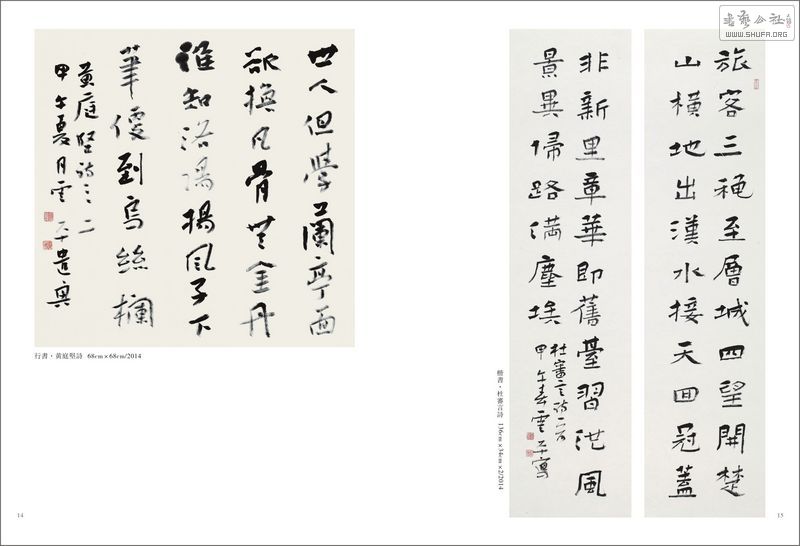 書藝公社
WWW.SHUFA.ORG
世人但學蘭亭面
欲換凡骨無金丹
誰知洛陽楊風子下
筆便到烏絲欄
黃庭堅詩
甲午夏月雲 遣興
行書・黃庭堅詩 68cm×68cm/2014
旅客三穐至層城四望開楚
山橫地出漢水接天回冠蓋
非新里章華即舊臺習池風
景異歸路滿塵埃
杜審言詩一首
甲午春雲 寫
楷書・杜審言詩 136cm×34cm×2/2014
14
15